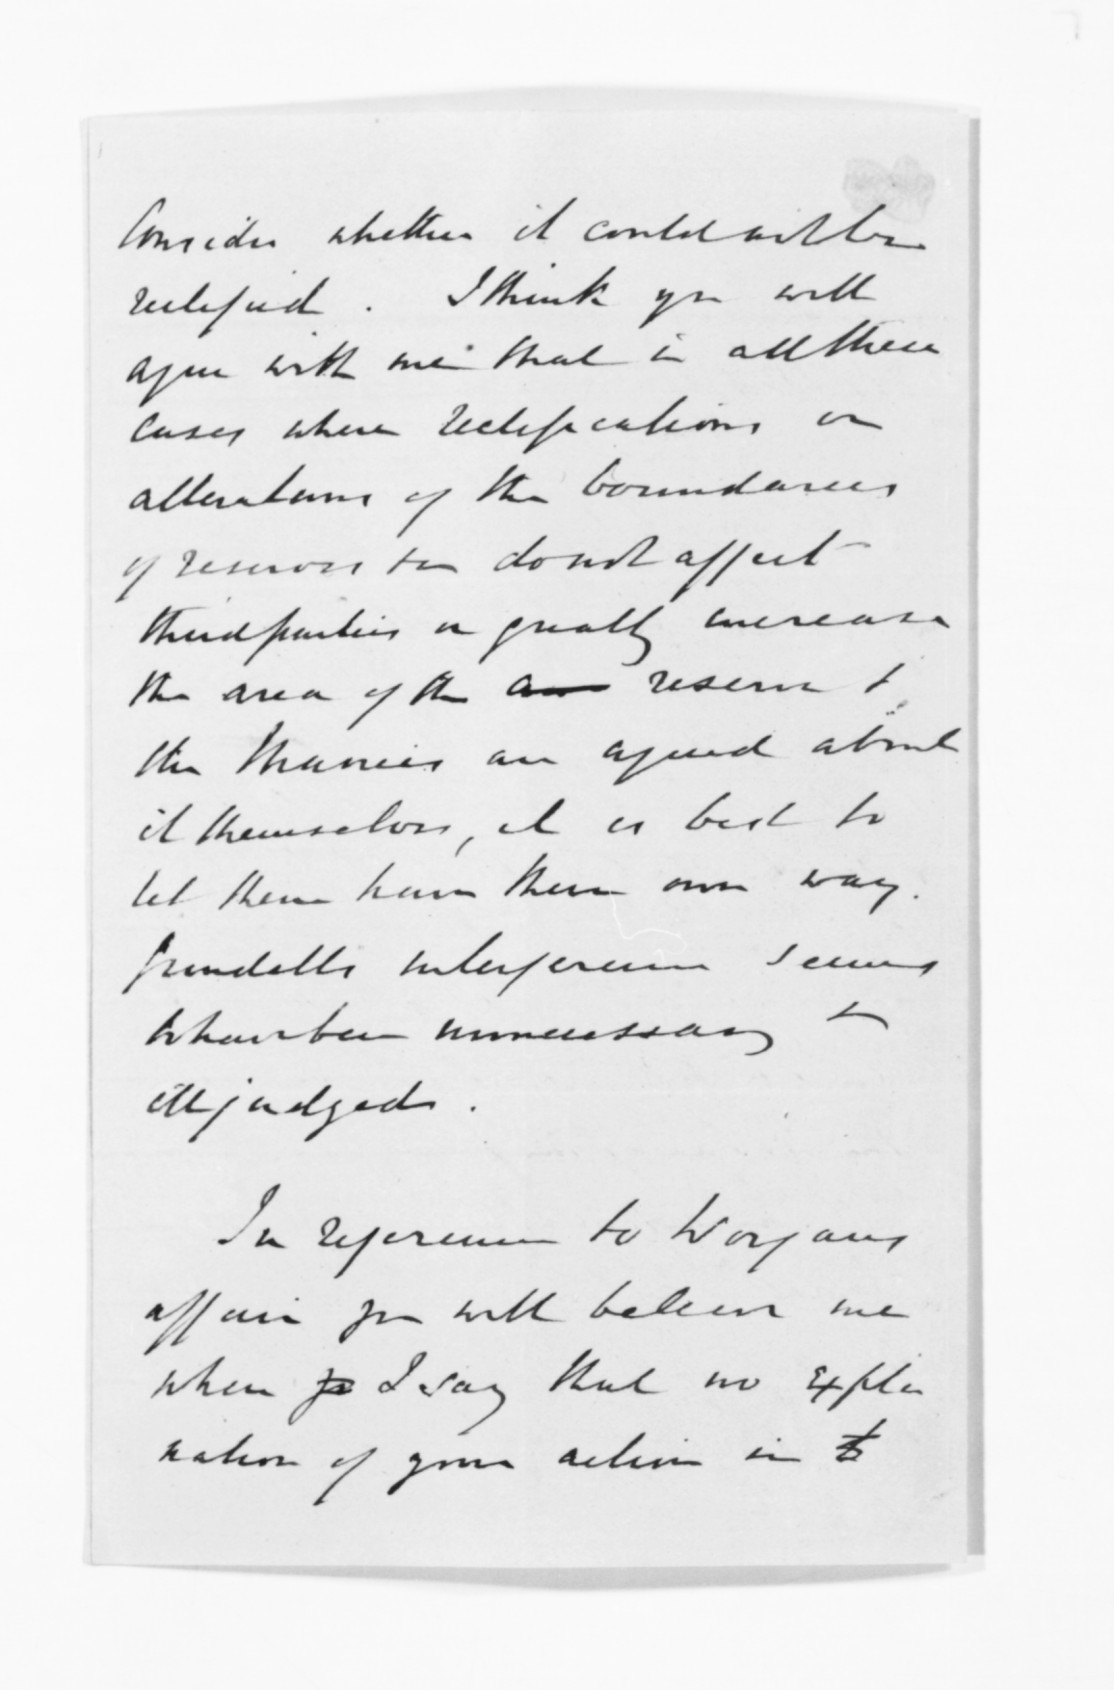 Consider whether it could not be
rectified. I think you will
agree with me that in all these
cases where rectifications or
alterations of the boundaries
of reserves do not affect
third parties or greatly increase
the area of the reserve &
the Maories are agreed about
it themselves, it is best to
let them have their own way.
interference seems
to have been unnecessary &
ill judged.
In reference to Worgans
affair you will believe me
when I say that no expla
nation of your action in